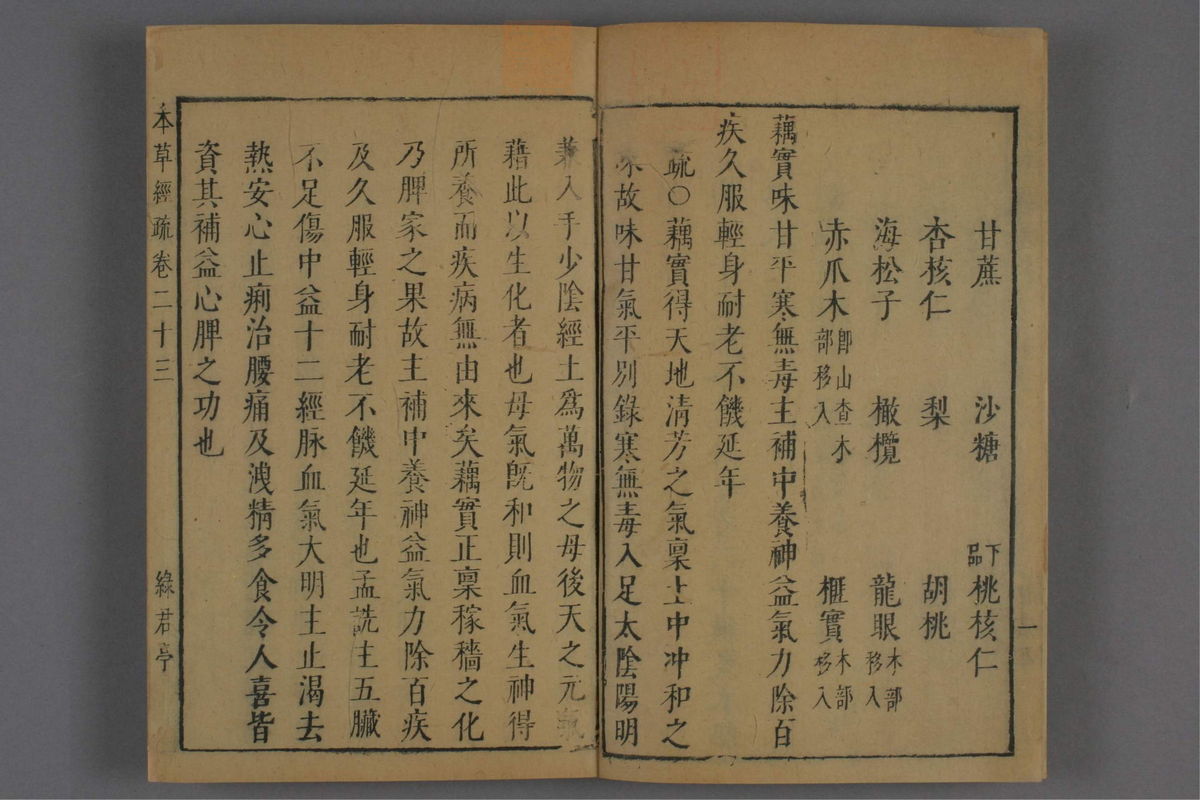 甘蔗 沙糖 下品 桃核仁
杏核仁 梨 胡桃
海松子 橄欖 龍眼 木部移入
赤爪木 卽山查木部移入 榧實 木部移入
藕實味甘平寒無毒主補中養神益氣力除百
疾久服輕身耐老不饑延年
疏○藕實得天地清芳之氣稟土中冲和之
味故味甘氣平別錄寒無毒入足太陰陽明
兼入手少陰經土爲萬物之母後天之元氣
藉此以生化者也母氣旣和則血氣生神得
所養而疾病無由來矣藕實正稟稼穡之化
乃脾家之果故主補中養神益氣力除百疾
及久服輕身耐老不饑延年也孟詵主五臟
不足傷中益十二經脉血氣大明主止渴去
熱安心止痢治腰痛及洩精多食令人喜皆
資其補益心脾之功也
本草經疏卷二十三 綠君亭